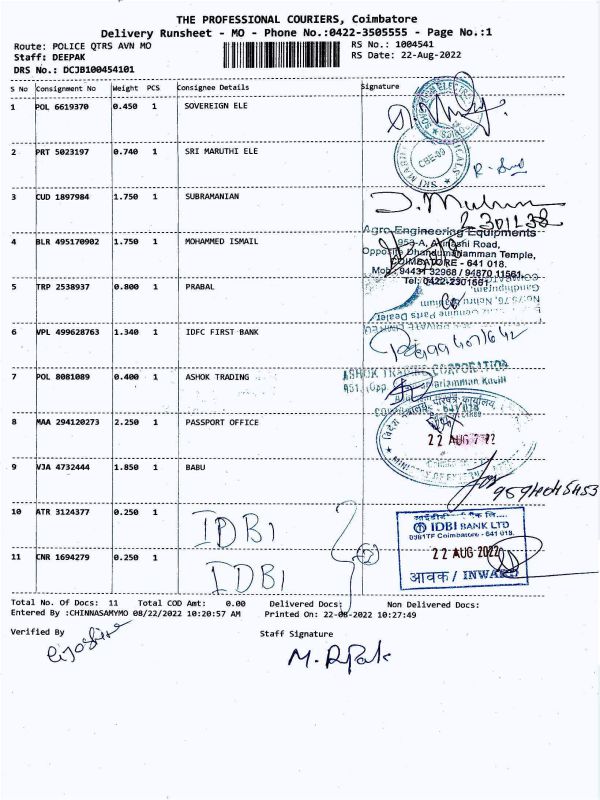 THE PROFESSIONAL COURIERS, Coimbatore
Delivery Runsheet - MO - Phone No.:0422-3505555 - Page No.:1
Route: POLICE QTRS AVN MO
RS No.: 1004541
Staff: DEEPAK
RS Date: 22-Aug-2022
DRS No.: DCJB100454101
S No Consignment No Weight PCS Consignee Details Signature
1 POL 6619370 0.450 1 SOVEREIGN ELE
2 PRT 5023197 0.740 1 SRI MARUTHI ELE
CBE-09
3 CUD 1897984 1.750 1 SUBRAMANIAN
Agro Engineering Equipments
4 BLR 495170902 1.750 1 MOHAMMED ISMAIL
953-A, Avinashi Road,
COIMBATORE - 641 018.
Mob: 94431 32968 / 94870 11561
Tel: 0422-2301561
5 TRP 2538937 0.800 1 PRABAL
6 VPL 499628763 1.340 1 IDFC FIRST BANK
7 POL 8081089 0.400 1 ASHOK TRADING
ASHOK TRADING CORPORATION
8 MAA 294120273 2.250 1 PASSPORT OFFICE
22 AUG
9 VJA 4732444 1.850 1 BABU
10 ATR 3124377 0.250 1 IDBI
IDBI BANK LTD
Coimbatore - 641 018.
22 AUG 2022
11 CNR 1694279 0.250 1 IDBI
आवक / INWARD
Total No. Of Docs: 11 Total COD Amt: 0.00 Delivered Docs: Non Delivered Docs:
Entered By :CHINNASAMYMO 08/22/2022 10:20:57 AM Printed On: 22-08-2022 10:27:49
Verified By
Staff Signature